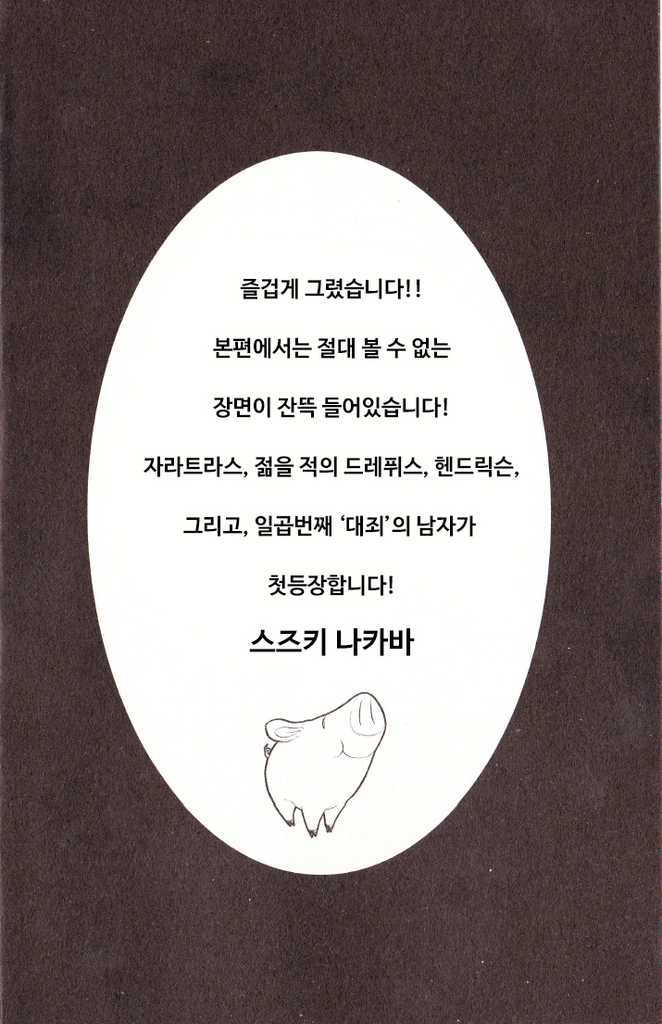 즐겁게 그렸습니다!!
본편에서는 절대 볼 수 없는
장면이 잔뜩 들어있습니다!
자라트라스, 젊을 적의 드레퓌스, 헨드릭슨,
그리고, 일곱번째 ‘대죄’의 남자가
첫등장합니다!
스즈키 나카바